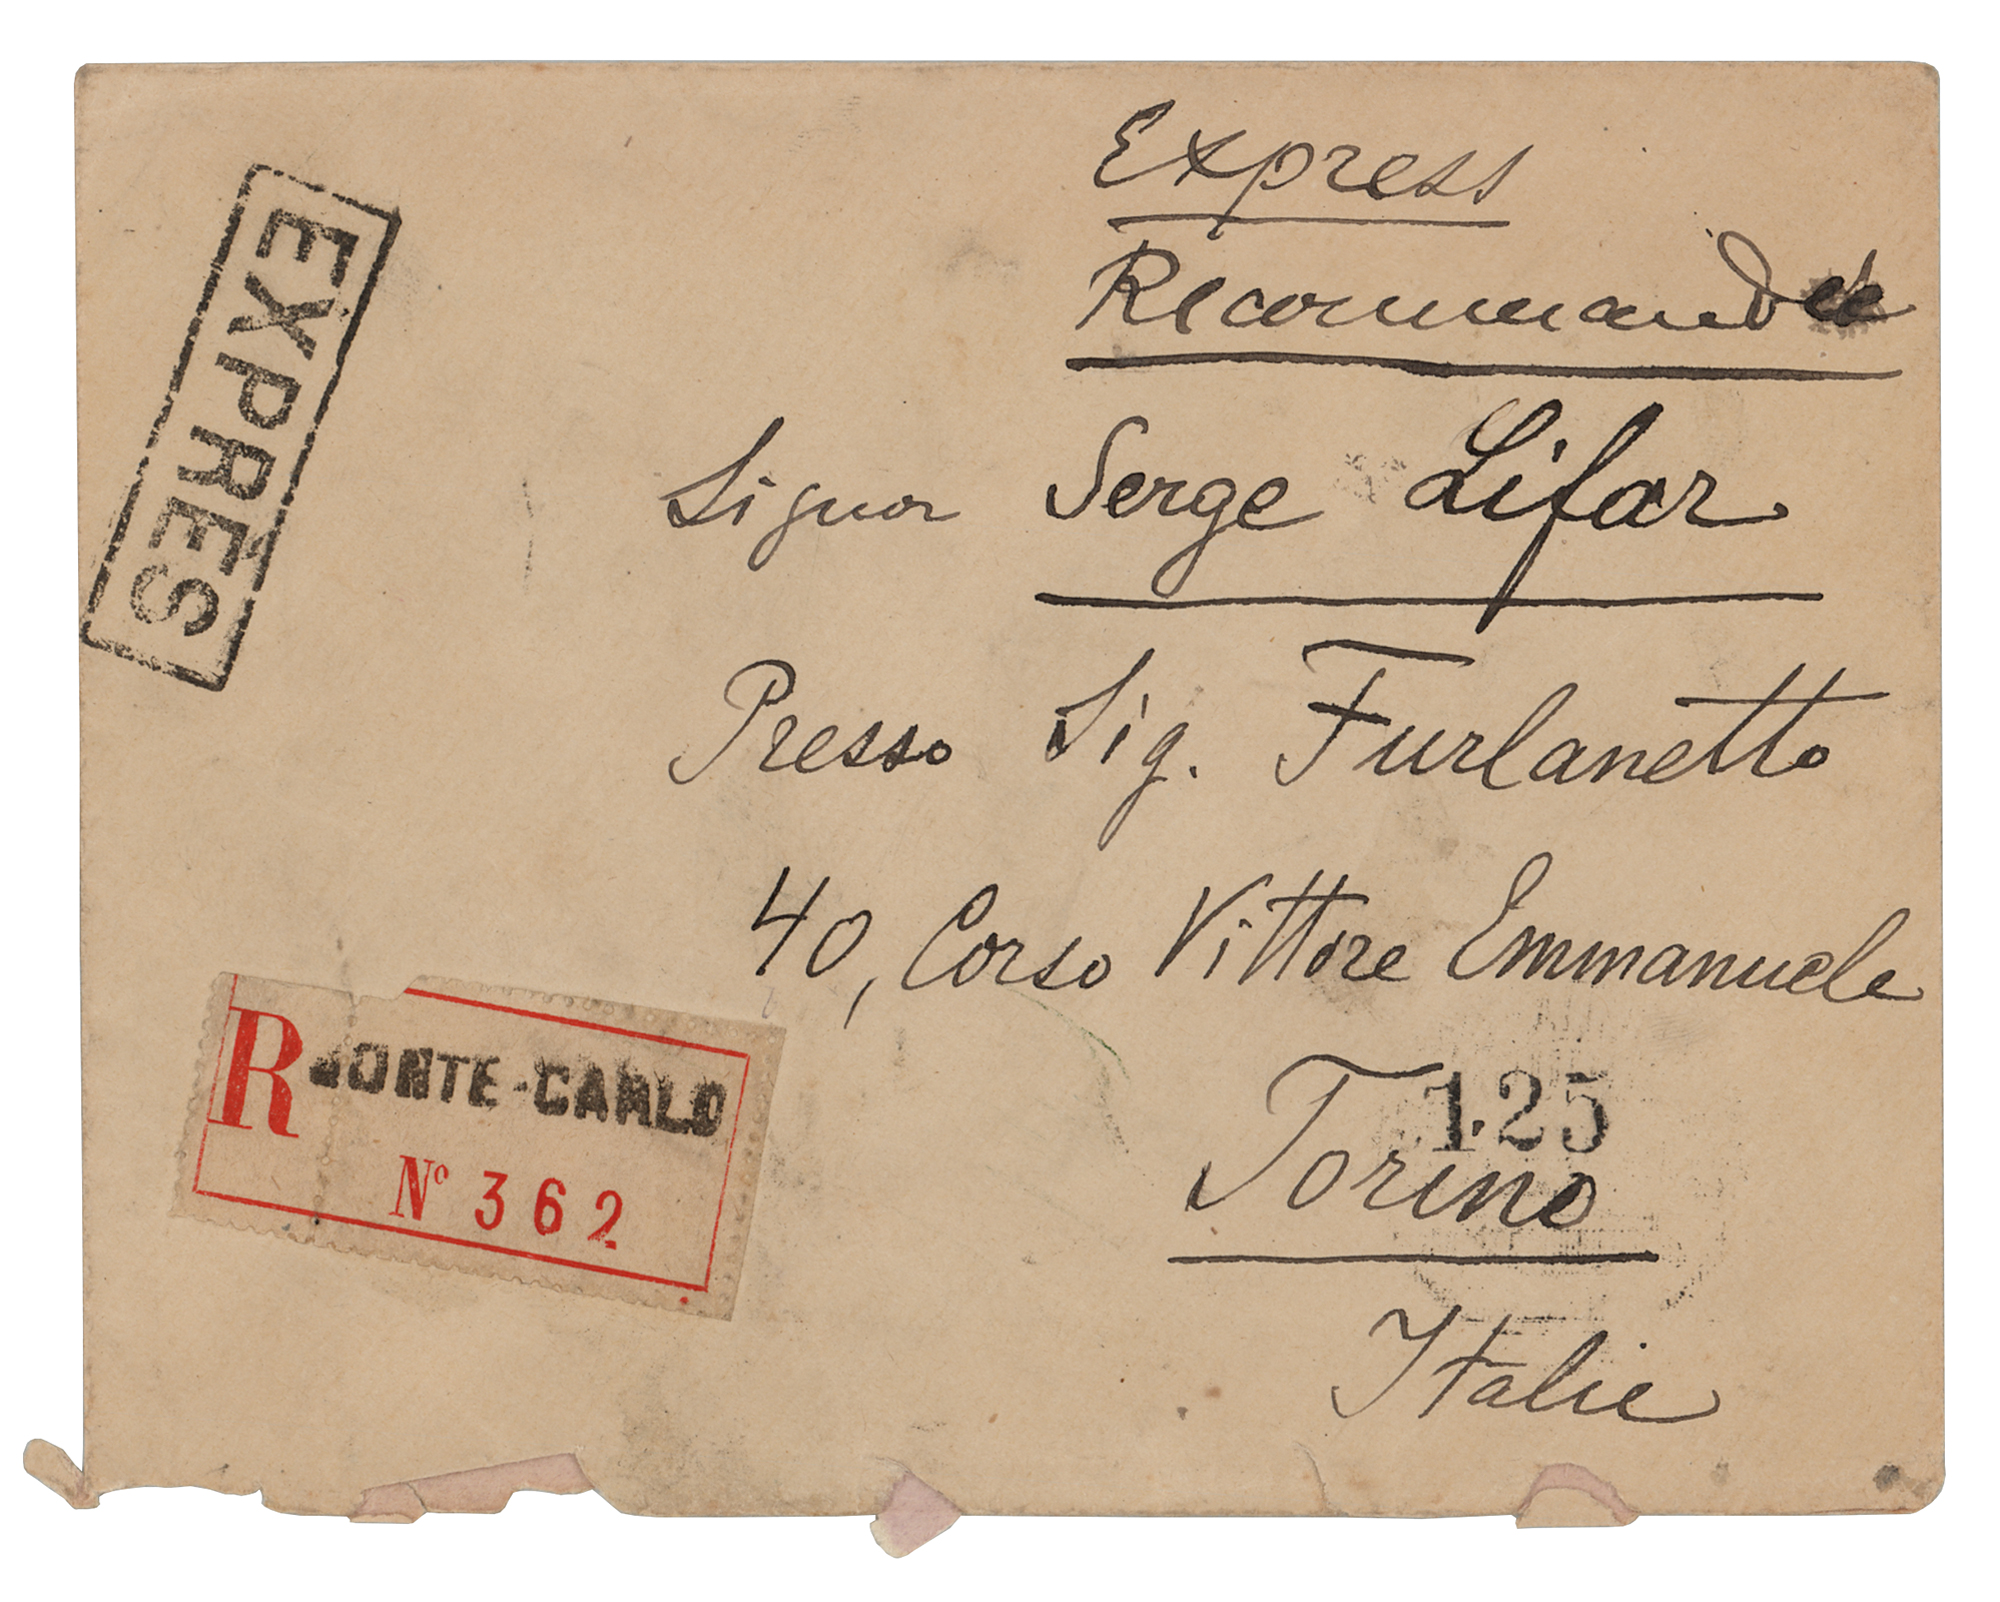 Express
Recommandée
EXPRÈS
Signor Serge Lifar
Presso Sig. Furlanetto
40, Corso Vittore Emmanuele
1.25
Torino
Italie
R MONTE-CARLO
Nº 362